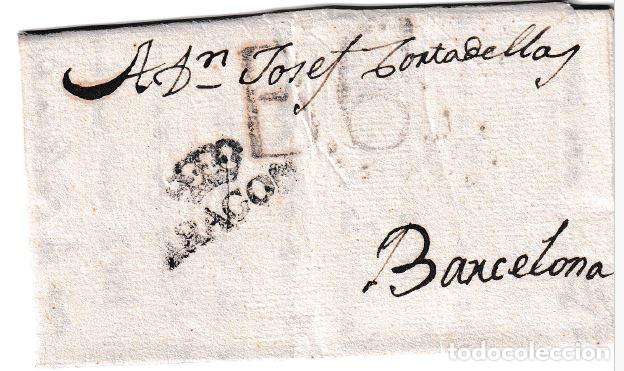 A Dn. Josef Tortadellas
B.6
ARAGON
Barcelona
todocoleccion